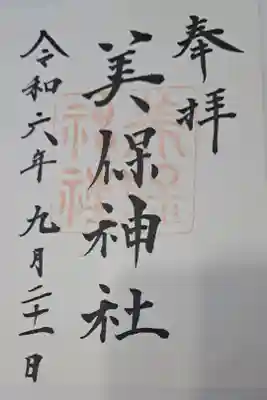 奉拝
美保神社
令和六年九月二十一日